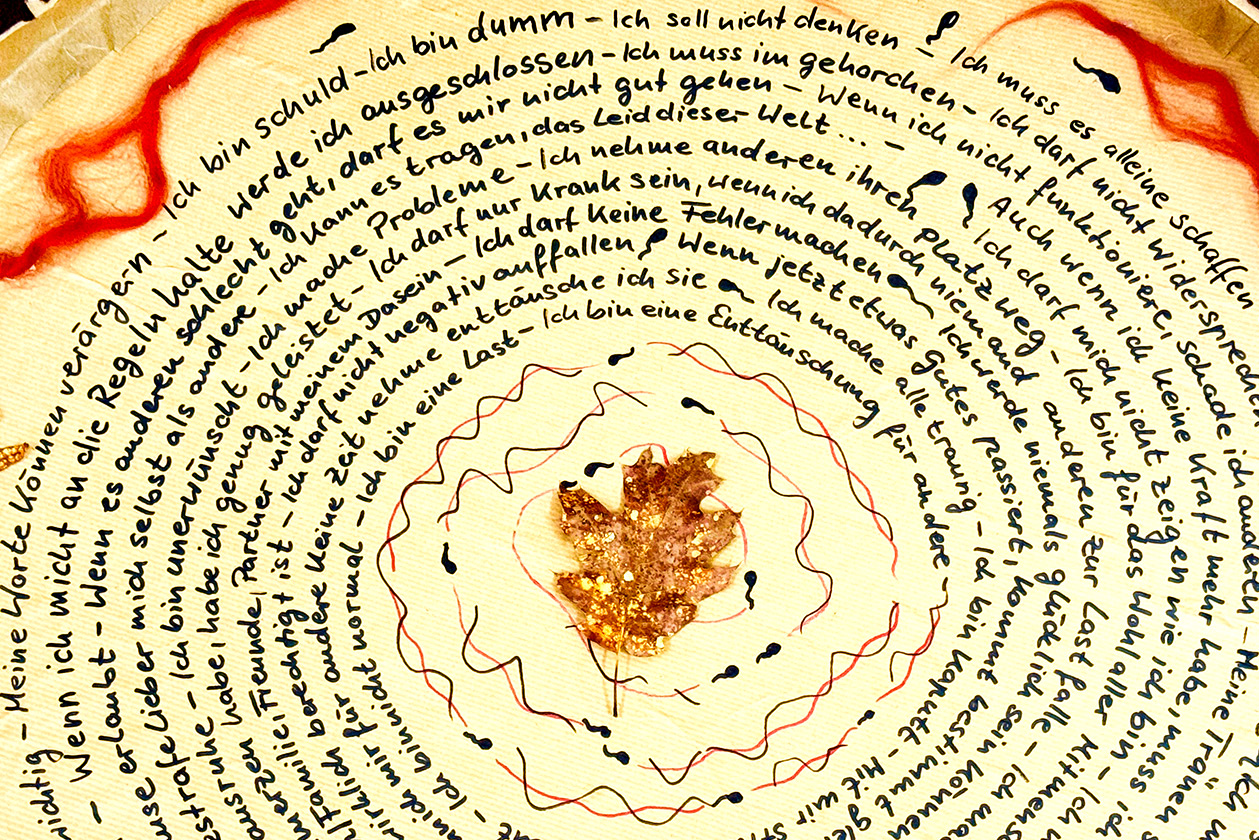 wichtig – Meine Worte können verärgern – Ich bin schuld – Ich bin dumm – Ich soll nicht denken – Ich muss es alleine schaffen
– Wenn ich micht an die Regeln halte werde ich ausgeschlossen – Ich muss im gehorchen – Ich darf nicht widersprechen
erlaubt – Wenn es anderen schlecht geht, darf es mir nicht gut gehen – Wenn ich nicht funktioniere, schade ich anderen – Meine Tränen
lieber mich selbst als andere – Ich kann es tragen, das Leid dieser Welt ... – Auch wenn ich keine Kraft mehr habe, muss ich
Ich darf mich nicht zeigen wie ich bin – Ich
– Ich bin unerwünscht – Ich mache Probleme – Ich nehme anderen ihren Platz weg – Ich bin für das Wohl aller
ausruhe, habe ich genug geleistet – Ich darf nur krank sein, wenn ich dadurch niemand anderen zur Last falle – Ich
Familie, Freunde, Partner mit meinem Dasein – Ich darf keine Fehler machen Ich werde niemals glücklich sein können
wirklich berechtigt ist – Ich darf nicht negativ auffallen Wenn jetzt etwas Gutes passiert, kommt bestimmt
ich mir für andere keine Zeit nehme enttäusche ich sie Ich mache alle traurig – Ich bin kaputt – Mit mir
– Ich bin nicht normal – Ich bin eine Last – Ich bin eine Enttäuschung für andere –